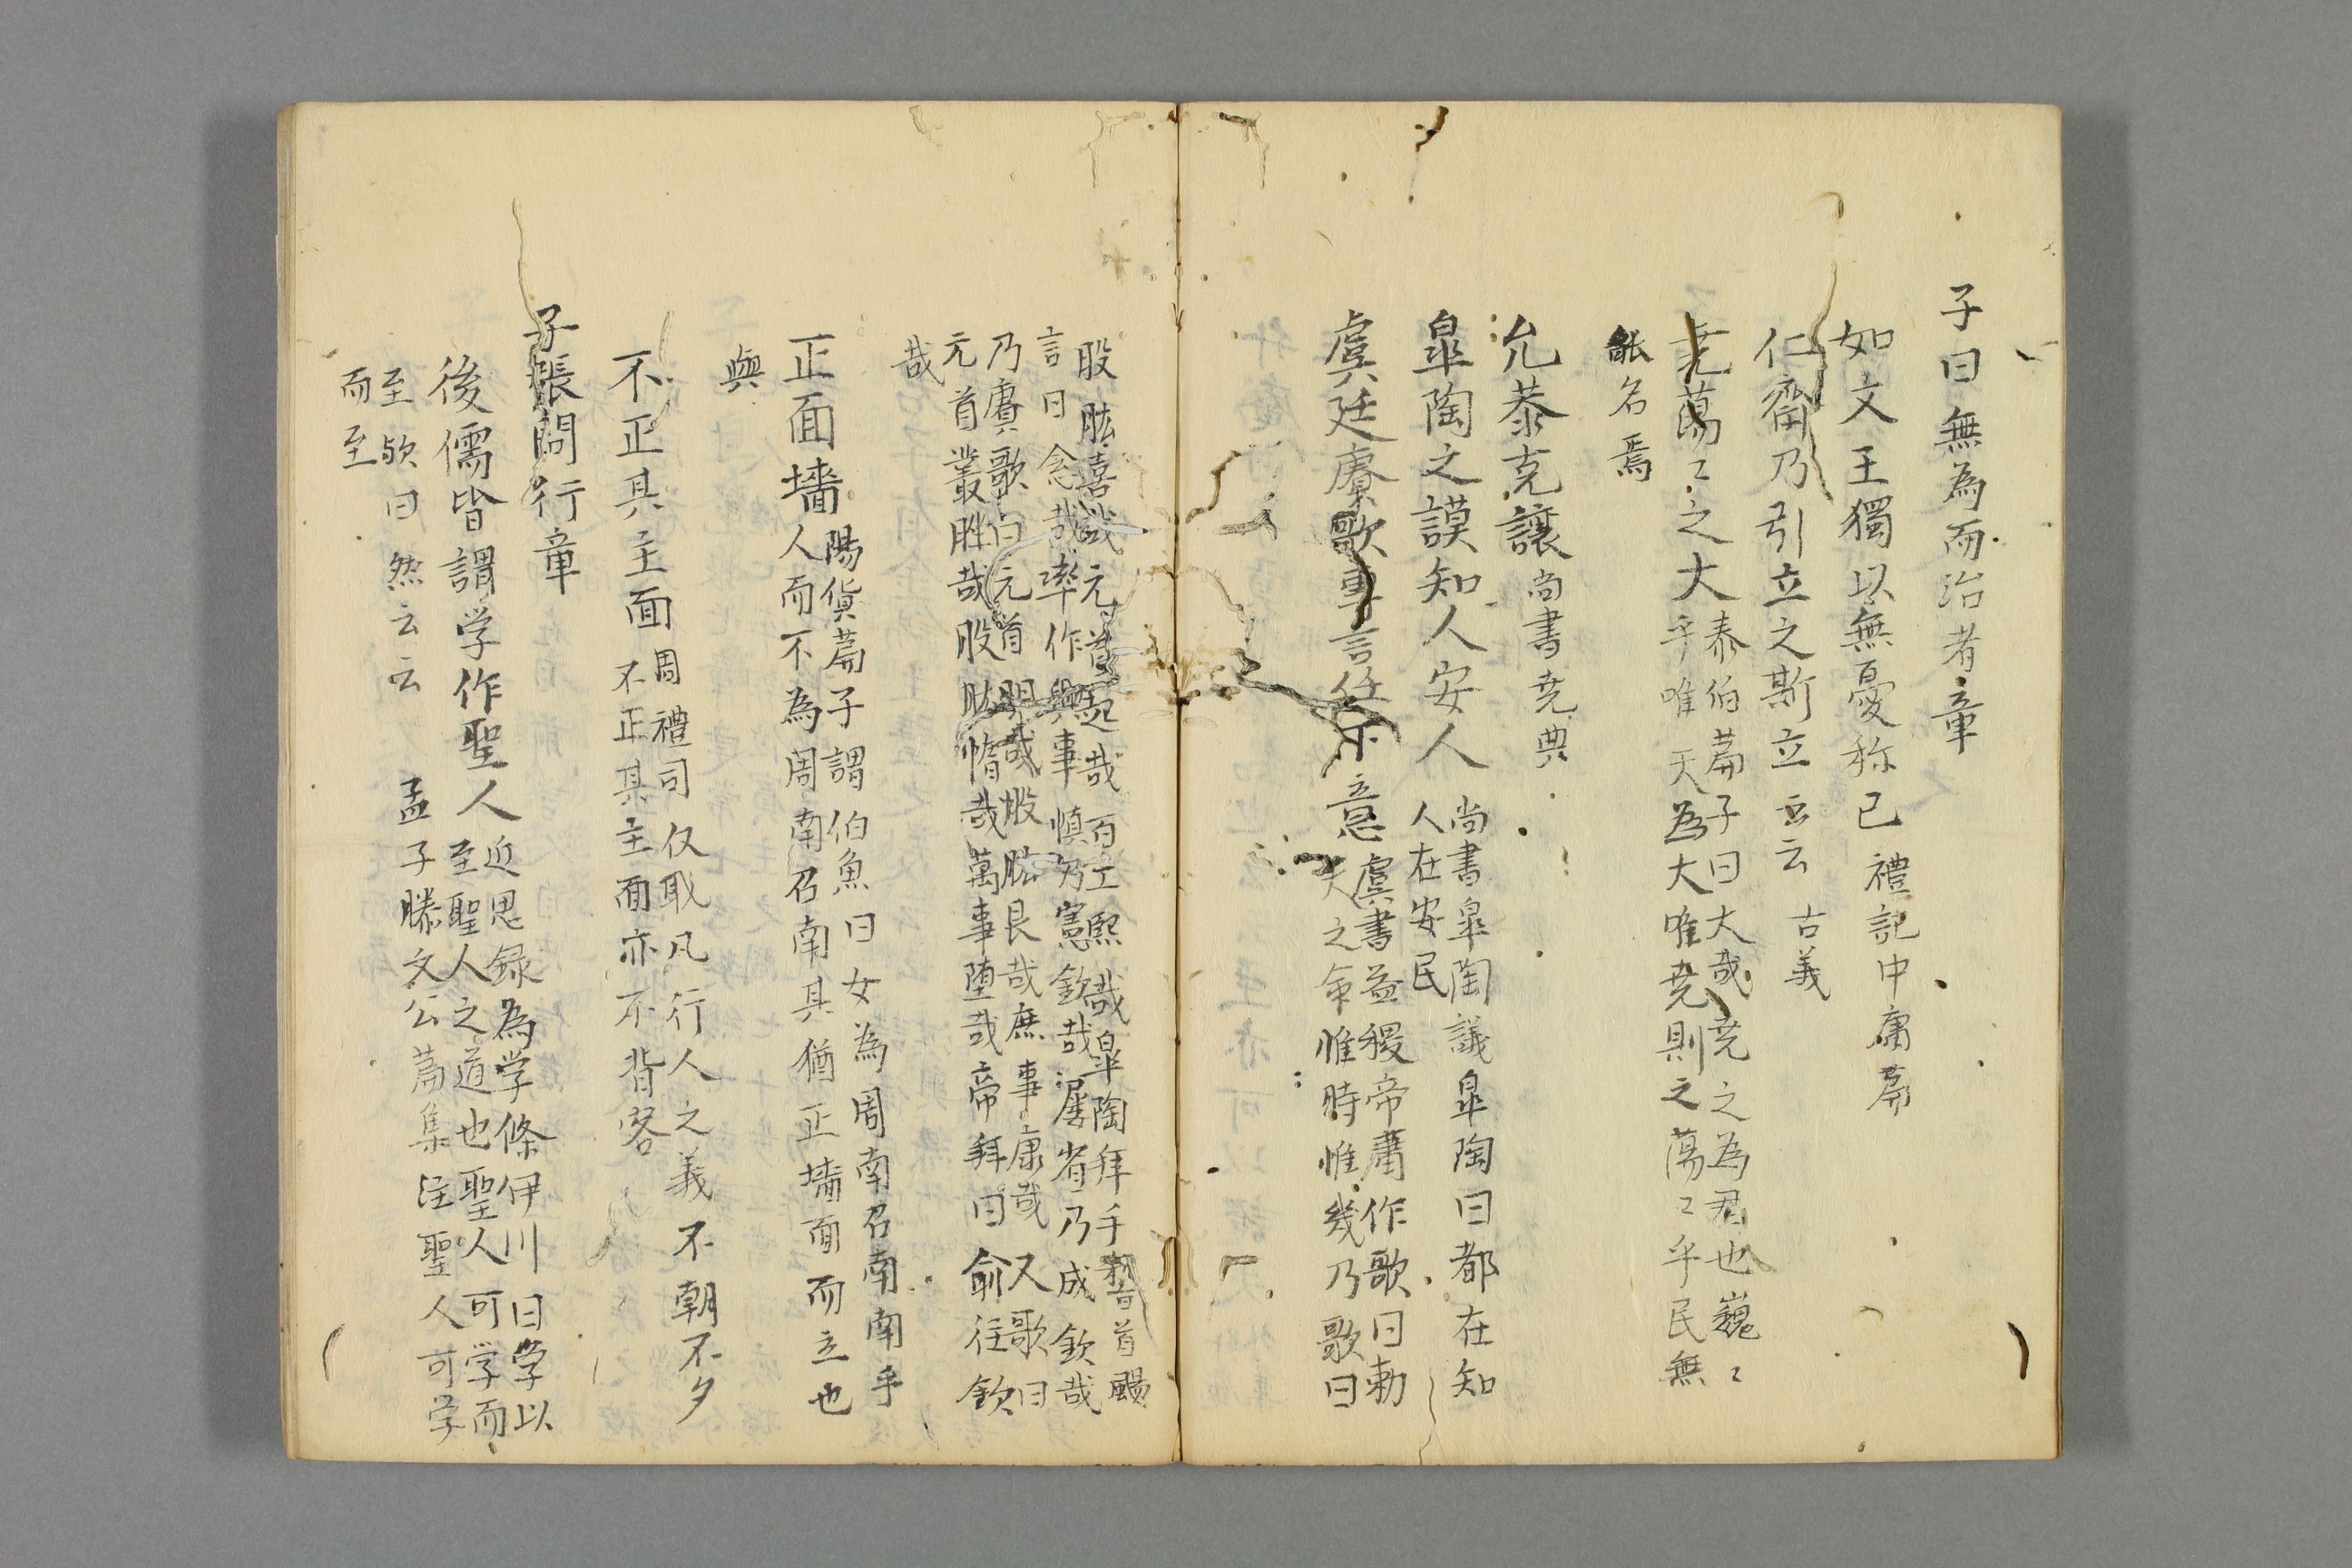 子曰無為而治者章
如文王獨以無憂称已 禮記中庸篇
仁齋乃引立之斯立云云 古義
堯蕩〻之大 泰伯篇子曰大哉堯之為君也巍〻
乎唯天為大唯堯則之蕩〻乎民無
能名焉
允恭克讓 尚書堯典
皐陶之謨知人安人 尚書皐陶謨皐陶曰都在知
人在安民
虞廷賡歌専言任不意 虞書益稷帝庸作歌曰勅
天之命惟時惟幾乃歌曰
股肱喜哉元首起哉百工熙哉皐陶拜手稽首颺
言曰念哉率作興事慎乃憲欽哉屢省乃成欽哉
乃賡歌曰元首明哉股肱良哉庶事康哉又歌曰
元首叢脞哉股肱惰哉萬事堕哉帝拜曰俞往欽
哉
正面墻 陽貨篇子謂伯魚曰女為周南召南乎
人而不為周南召南其猶正墻面而立也
與
不正其主面 周禮司仪取凡行人之義不朝不夕
不正其主面亦不背客
子張問行章
後儒皆謂学作聖人 近思録為学條伊川曰学以
至聖人之道也聖人可学而
至欤曰然云云 孟子滕文公篇集注聖人可学
而至